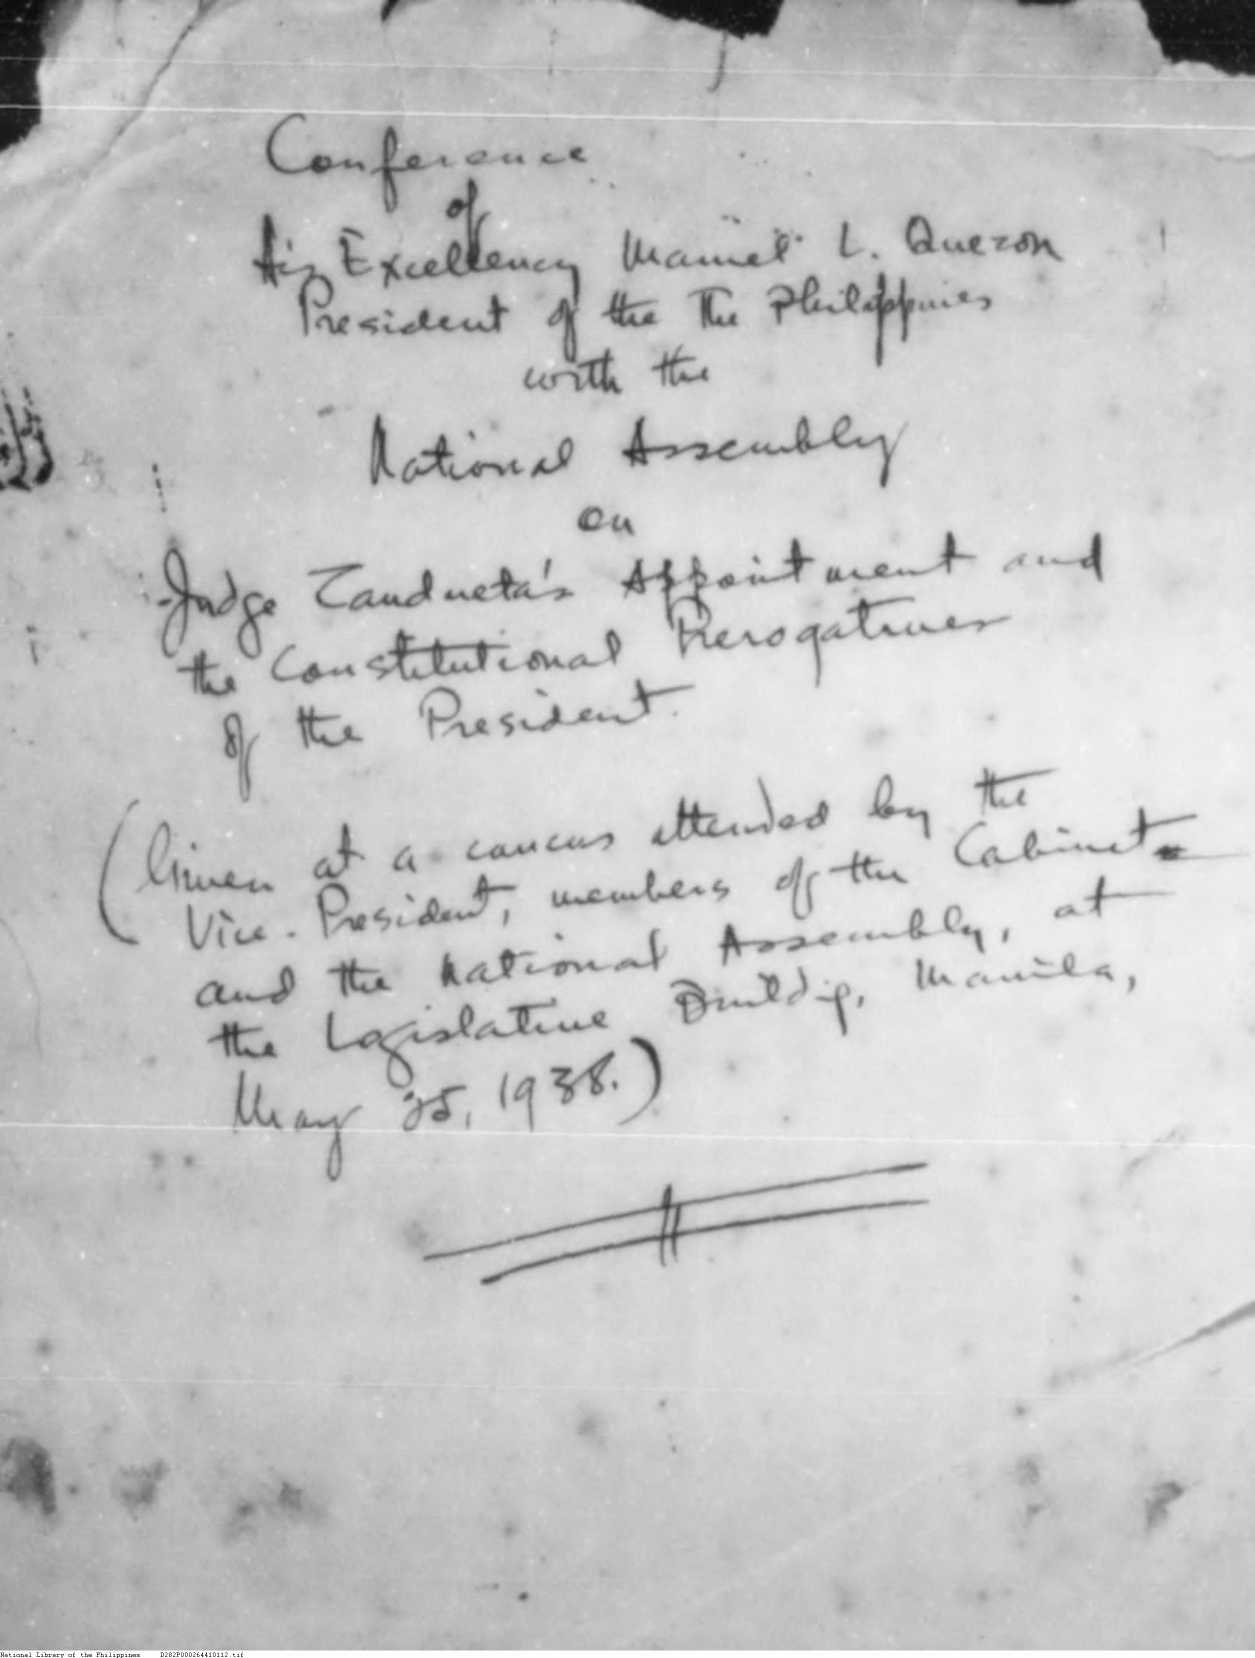 Conference
of
His Excellency Manuel L. Quezon
President of the The Philippines
with the
National Assembly
on
Judge Zandueta's Appointment and
the Constitutional Prerogatives
of the President.
(Given at a caucus attended by the
Vice-President, members of the Cabinet
and the National Assembly, at
the Legislative Buildig, Manila,
May 25, 1938.)
National Library of the Philippines D282P000264410112.tif